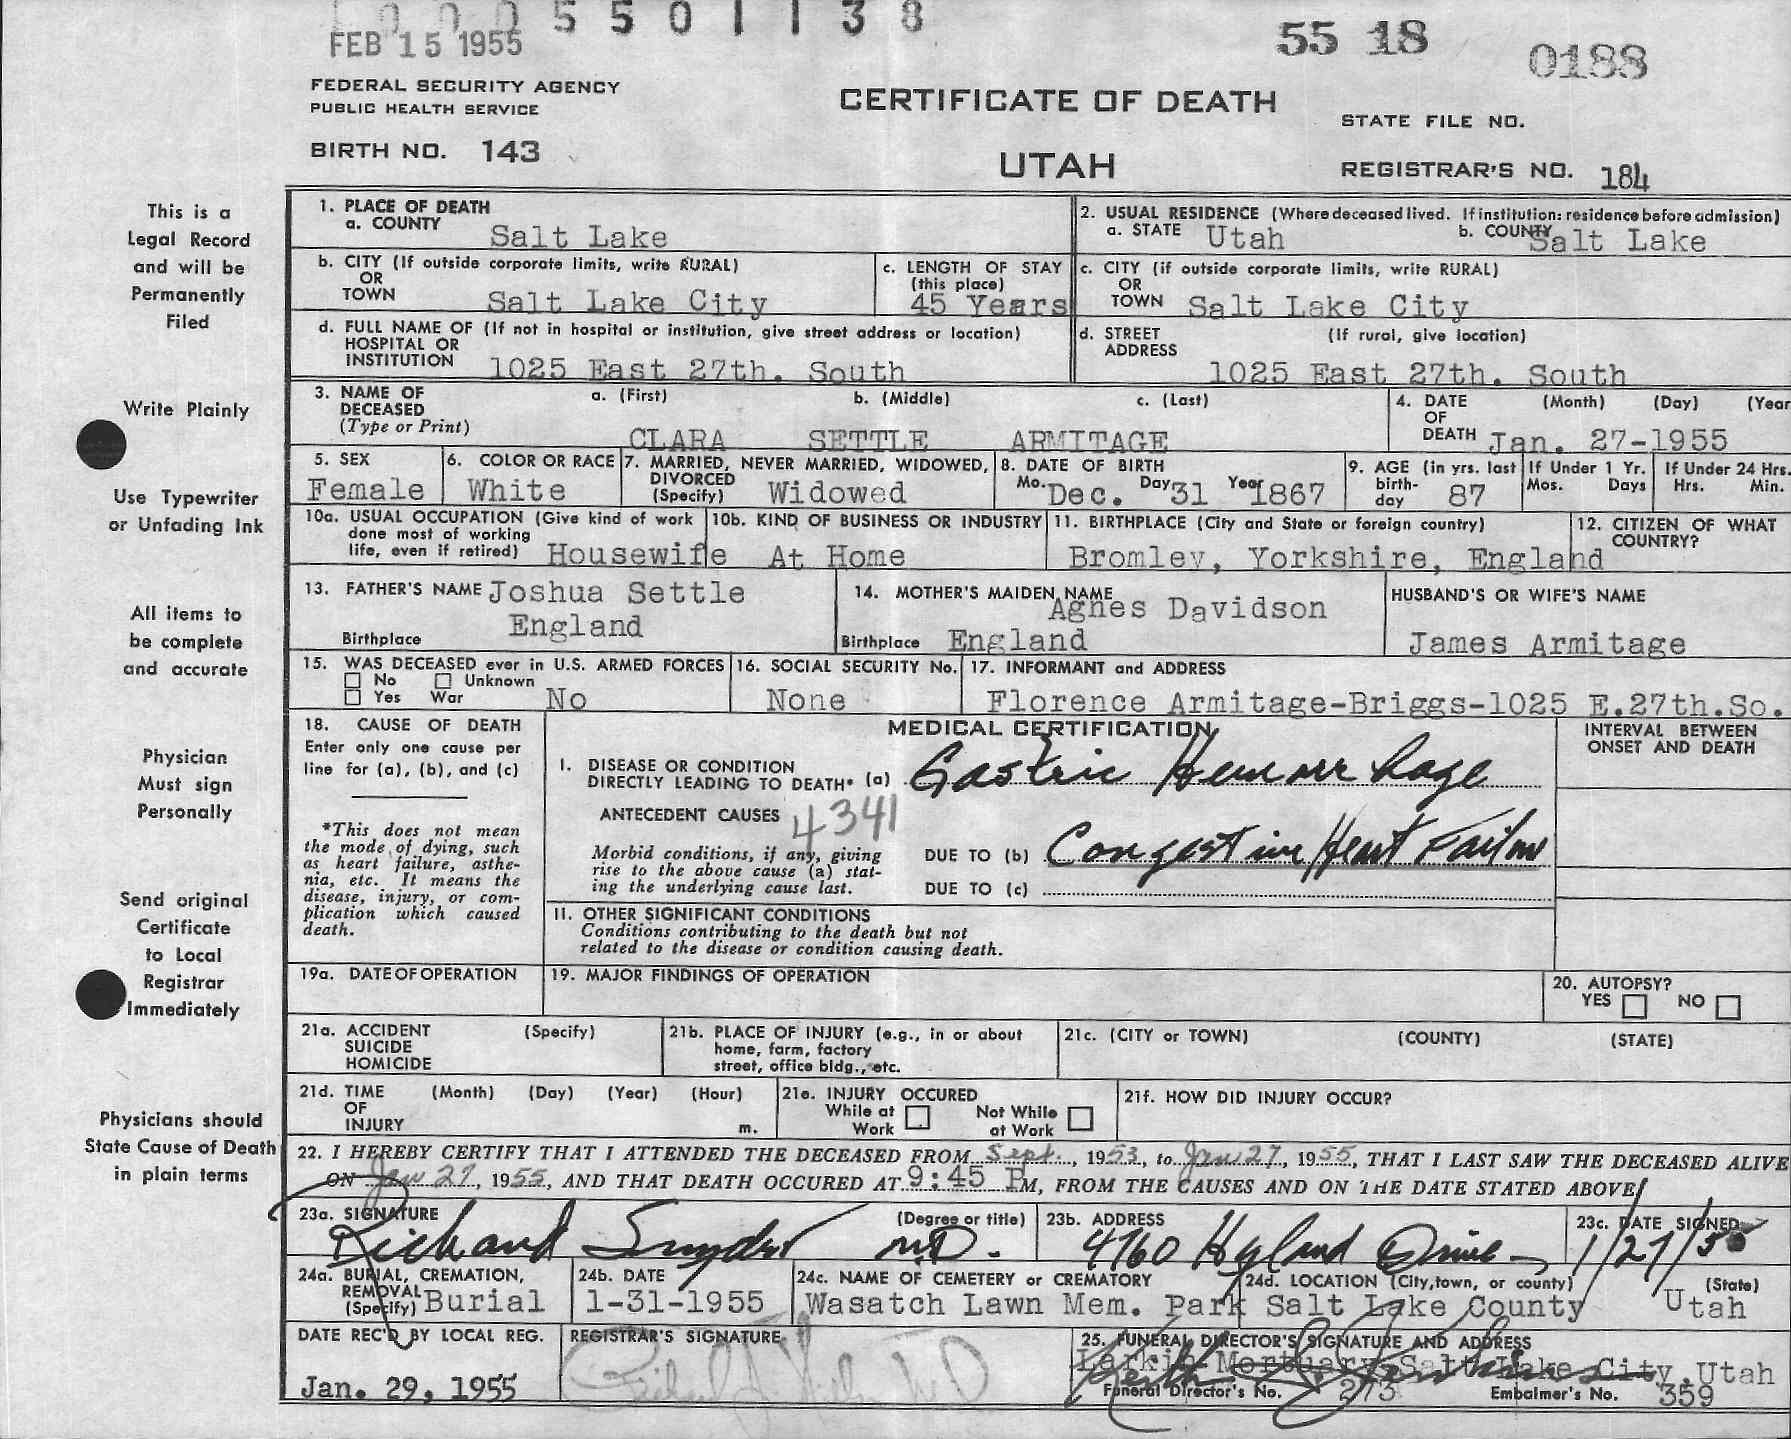 0 0 0 5 5 0 1 1 3 8
FEB 15 1955
55 18
0188
FEDERAL SECURITY AGENCY
PUBLIC HEALTH SERVICE
CERTIFICATE OF DEATH
STATE FILE NO.
BIRTH NO. 143
UTAH
REGISTRAR'S NO. 184
This is a
Legal Record
and will be
Permanently
Filed
Write Plainly
Use Typewriter
or Unfading Ink
All items to
be complete
and accurate
Physician
Must sign
Personally
Send original
Certificate
to Local
Registrar
Immediately
Physicians should
State Cause of Death
in plain terms
1. PLACE OF DEATH
a. COUNTY Salt Lake
2. USUAL RESIDENCE (Where deceased lived. If institution: residence before admission)
a. STATE Utah b. COUNTY Salt Lake
b. CITY (If outside corporate limits, write RURAL)
OR
TOWN Salt Lake City
c. LENGTH OF STAY
(this place)
45 Years
c. CITY (if outside corporate limits, write RURAL)
OR
TOWN Salt Lake City
d. FULL NAME OF (If not in hospital or institution, give street address or location)
HOSPITAL OR
INSTITUTION 1025 East 27th. South
d. STREET (If rural, give location)
ADDRESS
1025 East 27th. South
3. NAME OF a. (First) b. (Middle) c. (Last)
DECEASED
(Type or Print)
CLARA SETTLE ARMITAGE
4. DATE (Month) (Day) (Year
OF
DEATH Jan. 27-1955
5. SEX
Female
6. COLOR OR RACE
White
7. MARRIED, NEVER MARRIED, WIDOWED,
DIVORCED
(Specify) Widowed
8. DATE OF BIRTH
Mo. Dec. Day 31 Year 1867
9. AGE (in yrs. last
birth-
day 87
If Under 1 Yr.
Mos. Days
If Under 24 Hrs.
Hrs. Min.
10a. USUAL OCCUPATION (Give kind of work
done most of working
life, even if retired) Housewife
10b. KIND OF BUSINESS OR INDUSTRY
At Home
11. BIRTHPLACE (City and State or foreign country)
Bromley, Yorkshire, England
12. CITIZEN OF WHAT
COUNTRY?
13. FATHER'S NAME Joshua Settle
Birthplace England
14. MOTHER'S MAIDEN NAME
Agnes Davidson
Birthplace England
HUSBAND'S OR WIFE'S NAME
James Armitage
15. WAS DECEASED ever in U.S. ARMED FORCES
No Unknown
Yes War No
16. SOCIAL SECURITY No.
None
17. INFORMANT and ADDRESS
Florence Armitage-Briggs-1025 E.27th.So.
18. CAUSE OF DEATH
Enter only one cause per
line for (a), (b), and (c)
*This does not mean
the mode of dying, such
as heart failure, asthe-
nia, etc. It means the
disease, injury, or com-
plication which caused
death.
MEDICAL CERTIFICATION
INTERVAL BETWEEN
ONSET AND DEATH
I. DISEASE OR CONDITION
DIRECTLY LEADING TO DEATH* (a) Gastric Hemorrhage
ANTECEDENT CAUSES 4341
Morbid conditions, if any, giving
rise to the above cause (a) stat-
ing the underlying cause last.
DUE TO (b) Congestive Heart Failure
DUE TO (c)
II. OTHER SIGNIFICANT CONDITIONS
Conditions contributing to the death but not
related to the disease or condition causing death.
19a. DATE OF OPERATION
19. MAJOR FINDINGS OF OPERATION
20. AUTOPSY?
YES NO
21a. ACCIDENT (Specify)
SUICIDE
HOMICIDE
21b. PLACE OF INJURY (e.g., in or about
home, farm, factory
street, office bldg., etc.
21c. (CITY or TOWN) (COUNTY) (STATE)
21d. TIME (Month) (Day) (Year) (Hour)
OF
INJURY m.
21e. INJURY OCCURED
While at Work
Not While at Work
21f. HOW DID INJURY OCCUR?
22. I HEREBY CERTIFY THAT I ATTENDED THE DECEASED FROM Sept., 1953, to Jan 27, 1955, THAT I LAST SAW THE DECEASED ALIVE
ON Jan 27, 1955, AND THAT DEATH OCCURED AT 9:45 PM, FROM THE CAUSES AND ON THE DATE STATED ABOVE
23a. SIGNATURE (Degree or title)
Richard Snyder M.D.
23b. ADDRESS
4760 Hyland Drive
23c. DATE SIGNED
1/27/55
24a. BURIAL, CREMATION,
REMOVAL
(Specify) Burial
24b. DATE
1-31-1955
24c. NAME OF CEMETERY or CREMATORY
Wasatch Lawn Mem. Park
24d. LOCATION (City, town, or county) (State)
Salt Lake County Utah
DATE REC'D BY LOCAL REG.
Jan. 29, 1955
REGISTRAR'S SIGNATURE
25. FUNERAL DIRECTOR'S SIGNATURE AND ADDRESS
Larkin Mortuary Salt Lake City Utah
Funeral Director's No. 273 Embalmer's No. 359